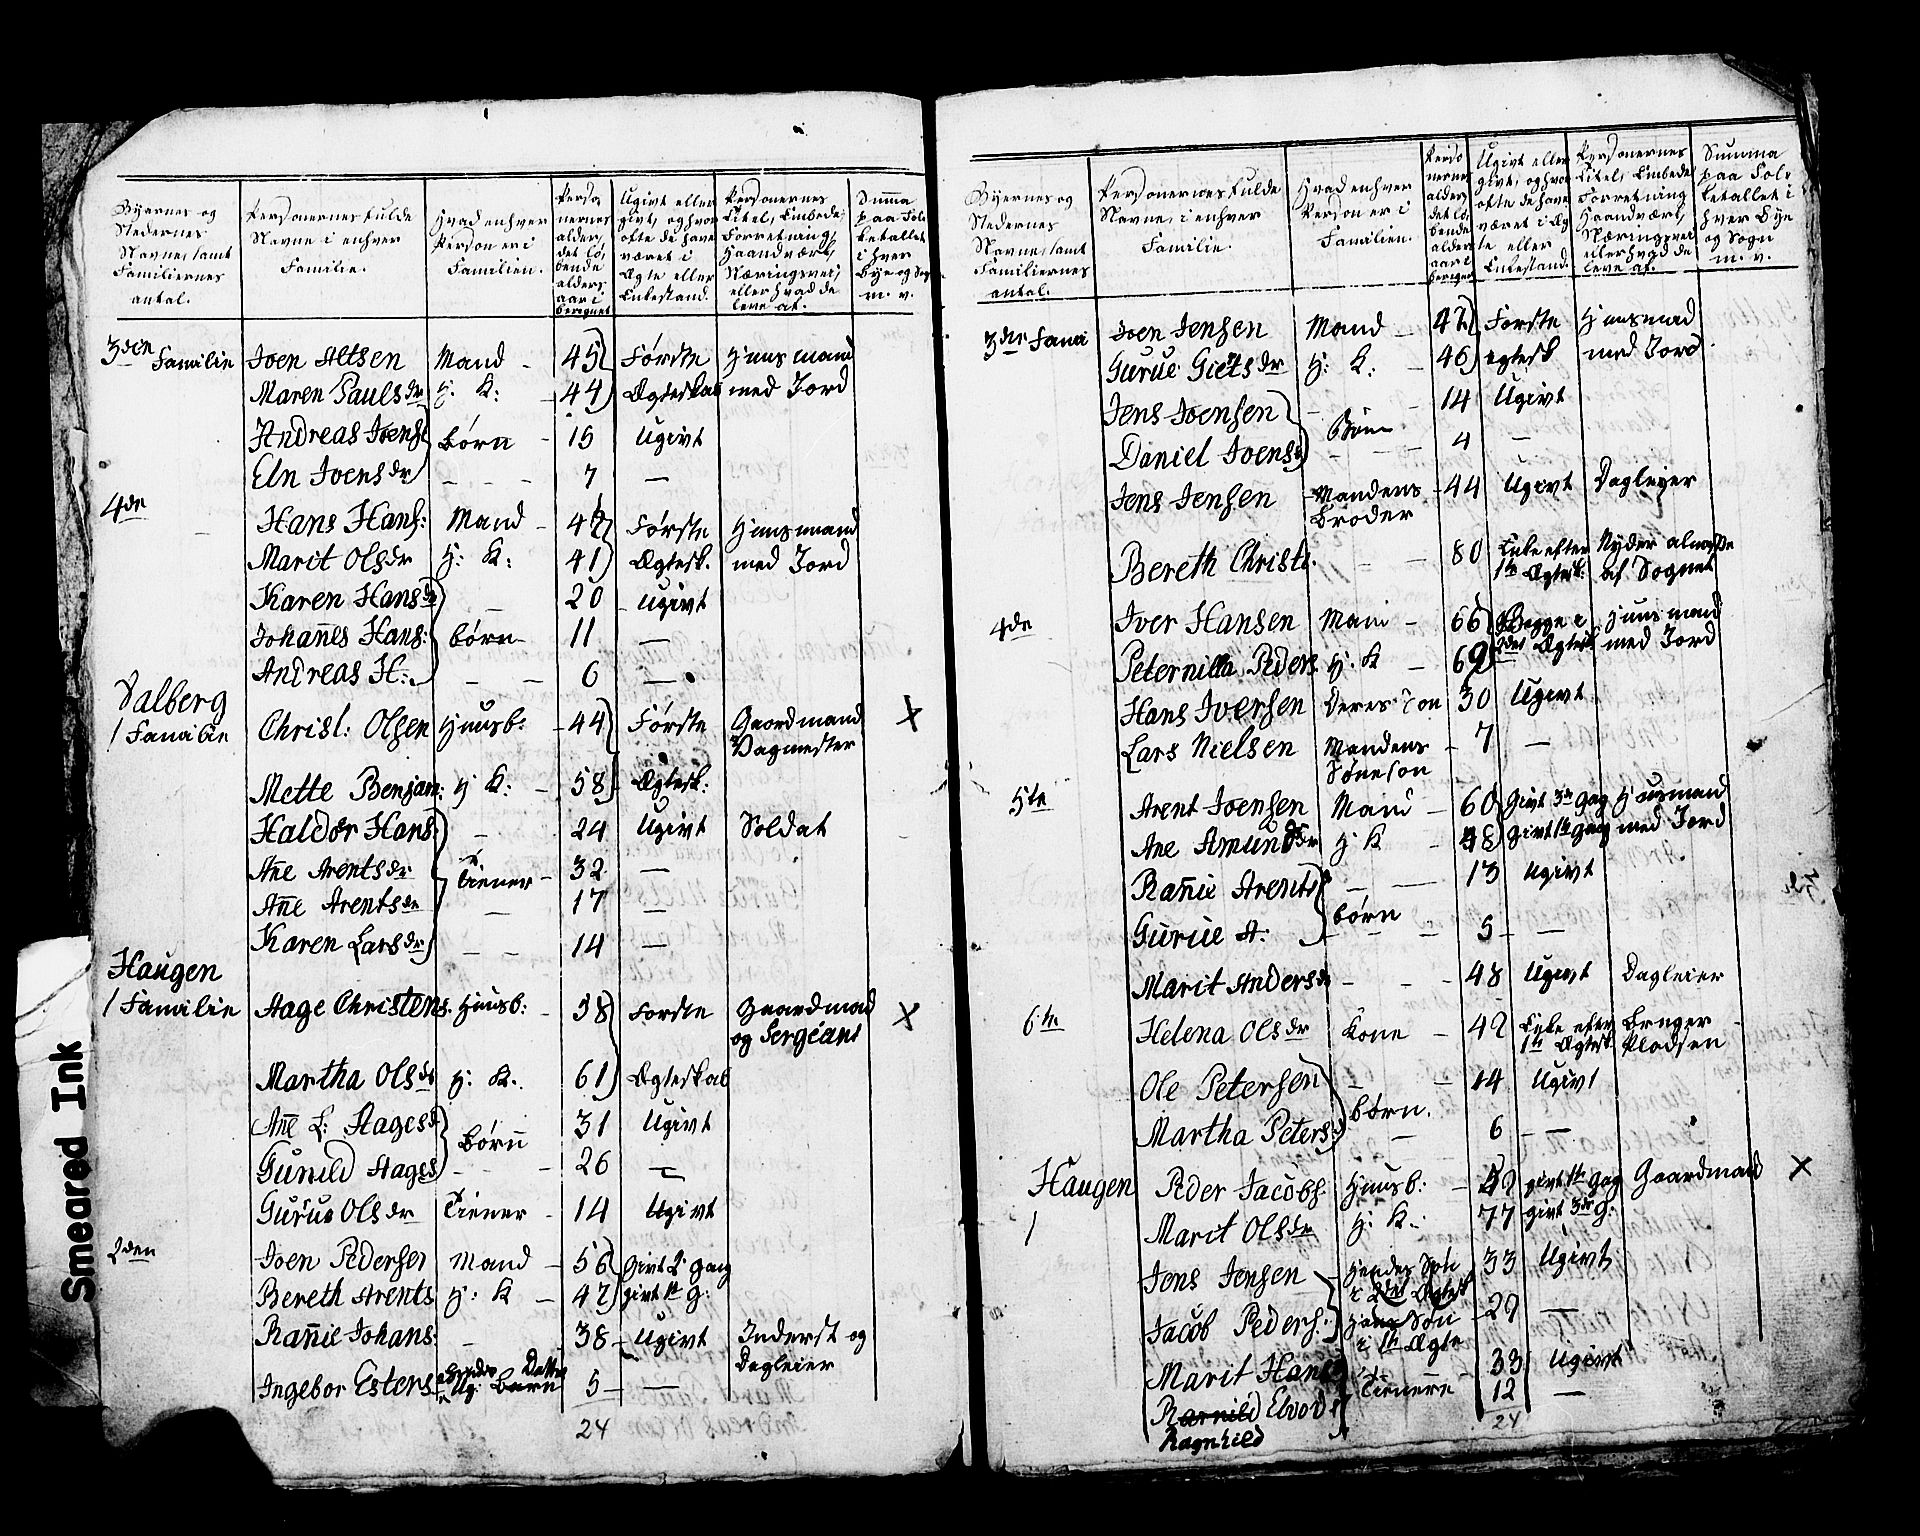 Byernes og Stedernes Navne, samt Familiernes antal.
Personernes fulde Navne i enhver Familie.
Hvad enhver Person er i Familien.
Personernes alder, det løbende alders aar i beregnet
Ugivt eller givt, og hvor ofte de have været i Ægte eller Enkestand.
Personernes Titel, Embede, Forretning, Haandværk, Næringsvei, eller hvad de leve af.
Summa paa Folketallet i hver Bye og Sogn m. v.
3den Familie Joen Altsen Mand - 45 Første Huusmand
Maren Paulsdr H: K: - 44 Ægteskab med Jord
Andreas Joens børn - 15 Ugivt
Eln Joensdr - - - 7 —
4de Hans Hans: Mand - 42 Første Huusmand
Marit Olsdr H: K: 41 Ægtesk. med Jord
Karen Hansdr — 20 Ugivt
Johan̄es Hans: børn 11 —
Andreas H: — — 6 —
Valberg
1 Familie Christ: Olsen Huusb: - 44 Første Gaardmand X
Vagmester
Mette Benjam: H K: - 58 Ægtesk:
Haldor Hans - 24 Ugivt Soldat
Ane Arentsdr Tiener - 32 —
An̄e Arentsdr — 17 —
Karen Larsdr — — 14 —
Haugen
1 Familie Aage Christens. Huusb: - 38 Første Gaardmad X
og Sergeant
Martha Olsdr H: K. 61 Ægteskab
An̄e L: Aagesd børn̄ 31 Ugivt
Gunild Aages - - 26 —
Gurue Olsdr Tiener - 14 Ugivt
2den Joen Pedersen Mand - 56 givt 2 gang
Bereth Arents H: K - 47 givt 1te G:
Ran̄ie Johans: - 38 - Ugivt Inderst og
Dagleier
Ingebor Esters hendes Datter
Ug: Barn 5 —
24
Byernes og Stedernes Navne, samt Familiernes antal.
Personernes fulde Navne, i enhver Familie.
Hvad enhver Person er i Familien.
Personernes alder, det løbende alders aar i beregnet
Ugivt eller givt, og hvor ofte de have været i Ægte eller Enkestand.
Personernes Titel, Embede Forretning Haandværk, Næringsvei eller hvad de leve af.
Summa paa Folketallet i hver Bye og Sogn m. v.
3die Fami Joen Jensen Mand - 42 Første Huusmad
Gurue Gietsdr H: K: - 46 egtesk med Jord
Jens Joensen - - 14 Ugivt
Daniel Joens Børn 4 —
Jens Jensen Mandens
Broder - 44 Ugivt Dagleyer
Bereth Christ. - - 80 Enke efter Nyder almosse
1te Ægtesk: af Sognet
4de Iver Hansen Man - 66 Begge i Huusmand
Peternilla Peders H: K - 62 2det Ægtesk med Jord
Hans Iversen Deres Søn 30 Ugivt
Lars Nielsen Mandens
Sønesøn - 7 —
5te Arent Joensen Mand - 60 givt 3die Gag Huusmand
Ane Amundsdr H K - 48 givt 1te gang med Jord
Ran̄ie Arents — — 13 Ugivt
Gurue A: børn - - 5 —
Marit Andersd - - - 48 Ugivt Dagleier
6te Helena Olsdr Kone - 42 Enke efter Bruger
1te Ægtesk Pladsen
Ole Petersen - - 14 Ugivt
Martha Peters: børn. — 6 —
Haugen Peder Jacobs. Huusb: - 49 givt 1te Gag Gaardmand X
1 Marit Olsdr H: K: 77 givt 3die G:
Jens Jensen Hendes Søn 33 Ugivt
i 2det Ægtesk
Jacob Peders: Søn - 29 —
i 1te Ægte
Marit Hans - 33 Ugivt
Elvords Tienere - 12 —
Ragnhild
24
Smeared Ink